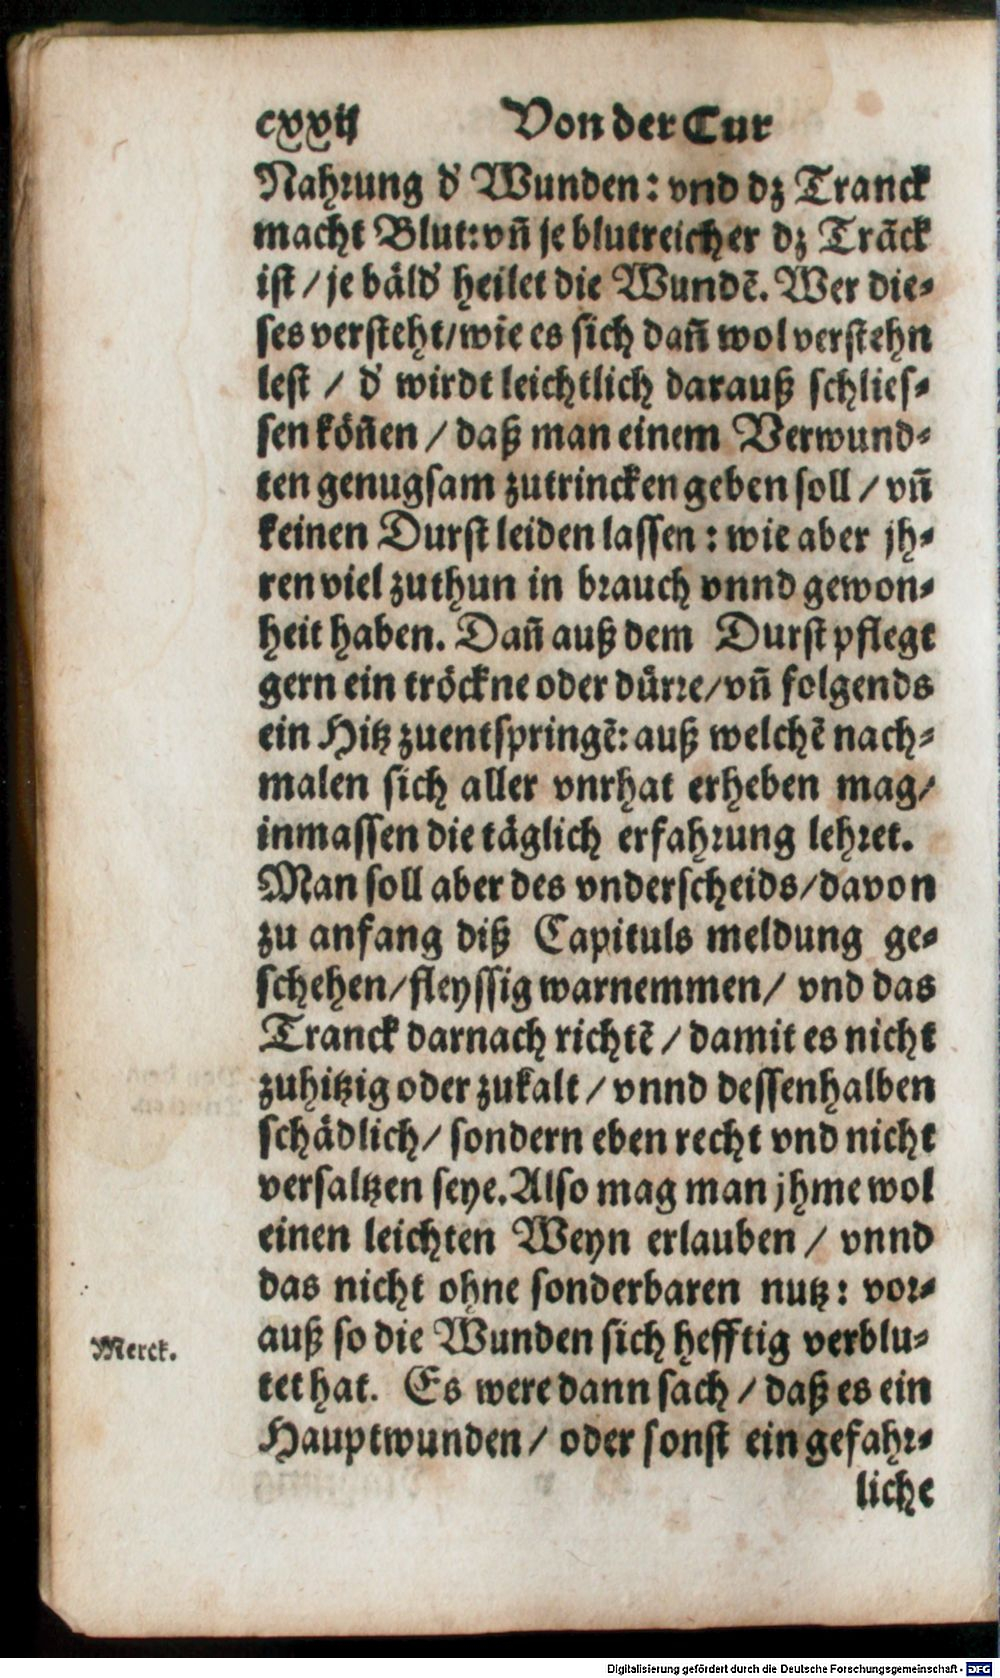 cxxij Von der Cur
Nahrung d' Wunden: vnd dz Tranck
macht Blut: vñ je blutreicher dz Trãck
ist / je bäld' heilet die Wundẽ. Wer die-
ses versteht / wie es sich dañ wol verstehn
lest / d' wirdt leichtlich darauß schlies-
sen köñen / daß man einem Verwund-
ten genugsam zutrincken geben soll / vñ
keinen Durst leiden lassen : wie aber jh-
ren viel zuthun in brauch vnnd gewon-
heit haben. Dañ auß dem Durst pflegt
gern ein tröckne oder dürre / vñ folgends
ein Hitz zuentspringẽ: auß welchẽ nach-
malen sich aller vnrhat erheben mag /
inmassen die täglich erfahrung lehret.
Man soll aber des vnderscheids / davon
zu anfang diß Capituls meldung ge-
schehen / fleyssig warnemmen / vnd das
Tranck darnach richtẽ / damit es nicht
zuhitzig oder zukalt / vnnd dessenhalben
schädlich / sondern eben recht vnd nicht
versaltzen seye. Also mag man jhme wol
einen leichten Weyn erlauben / vnnd
das nicht ohne sonderbaren nutz : vor-
auß so die Wunden sich hefftig verblu-
Merck.
tet hat. Es were dann sach / daß es ein
Hauptwunden / oder sonst ein gefahr-
liche
Digitalisierung gefördert durch die Deutsche Forschungsgemeinschaft - DFG